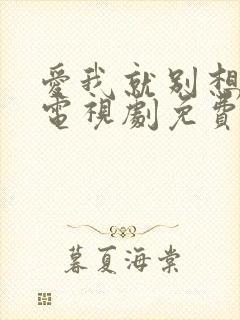 愛我就別想太多
電視劇免費
暮夏海棠